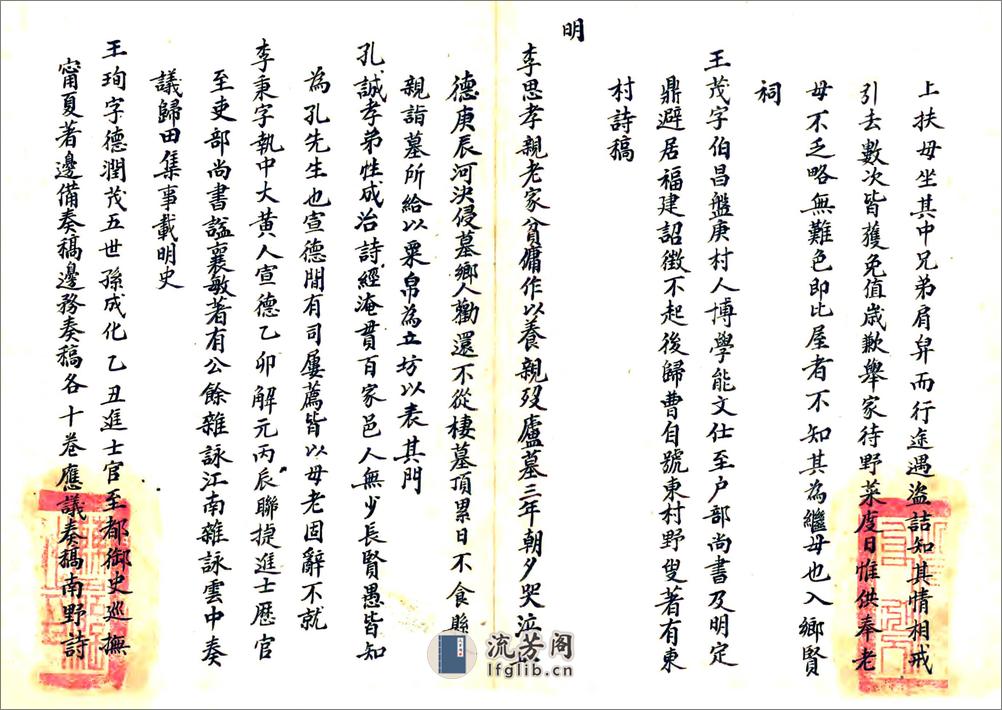 上扶母坐其中兄弟肩舁而行途遇盜詰知其情相戒
引去數次皆獲免值歲歉舉家待野菜度日惟供奉老
母不乏略無難色即比屋者不知其為繼母也入鄉賢
祠
王茂字伯昌盤庚村人博學能文仕至户部尚書及明定
鼎避居福建詔徵不起後歸曹自號東村野叟著有東
村詩稿
明
李思孝親老家貧傭作以養親歿廬墓三年朝夕哭泣
德庚辰河決侵墓鄉人勸還不從棲墓頂累日不食縣
親詣墓所給以粟帛為立坊以表其門
孔誠孝弟性成治詩經淹貫百家邑人無少長賢愚皆知
為孔先生也宣德間有司屢薦皆以母老固辭不就
李秉字執中大黄人宣德乙卯解元丙辰聯捷進士歷官
至吏部尚書謚襄敏著有公餘雜詠江南雜詠雲中奏
議歸田集事載明史
王珣字德潤茂五世孫成化乙丑進士官至都御史巡撫
甯夏著邊備奏稿邊務奏稿各十卷應議奏稿南野詩
流芳阁
lfglib.cn